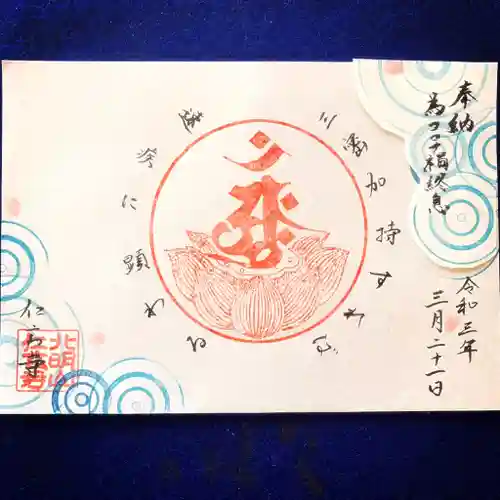 奉納
為コロナ禍終息
令和三年
三月二十一日
三密加持すれば
速疾に顕わる
北明山